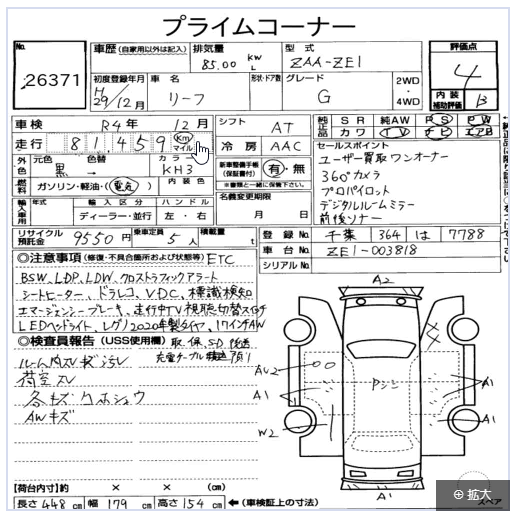 プライムコーナー
No. 26371
車歴 (自家用以外は記入)
排気量 85.00 kW L
型式 ZAA-ZE1
評価点 4
内装補助評価 B
初度登録年月 H29/12月
車名 リーフ
形状・ドア数
グレード G
2WD・4WD
車検 R4年 12月
走行 81,459 km マイル
シフト AT
冷房 AAC
純正品 SR 純AW PS PW
カワ TV ナビ エアB
外色 元色 黒 色替 → カラー KH3
燃料 ガソリン・軽油・(電気) 内装色
新車整備手帳(保証書付) 有・無
※書類と一緒に保険下さい。
名義変更期限 月 日
セールスポイント
ユーザー買取ワンオーナー
360°カメラ
プロパイロット
デジタルルームミラー
前後ソナー
輸入車用 年式 輸入区分 ディーラー・並行 ハンドル 左・右
リサイクル預託金 9550円 乗車定員 5人 積載量 t
登録No. 千葉 364 は 7788
車台No. ZE1-003818
シリアルNo.
◎注意事項 (修復・不具合箇所および状態等) ETC
BSW、LDP、LDW、クロストラフィックアラート
シートヒーター、ドラレコ、VDC、標識検知
エマージェンシーブレーキ、走行中TV視聴切替スイッチ
LEDヘッドライト、レグノ2020年製タイヤ、17インチAW
◎検査員報告 (USS使用欄) 取保SD後送
充電ケーブル積込頂!
ルーム内スレキズ汚レ
荷室スレ
各キズ
AWキズ
A2
AU2
Pシン
A1
A1
W2
A1
A1
スペア
【荷台内寸】約 × × (cm)
長さ 448 cm 幅 179 cm 高さ 154 cm ←(車検証上の寸法)
⊕ 拡大